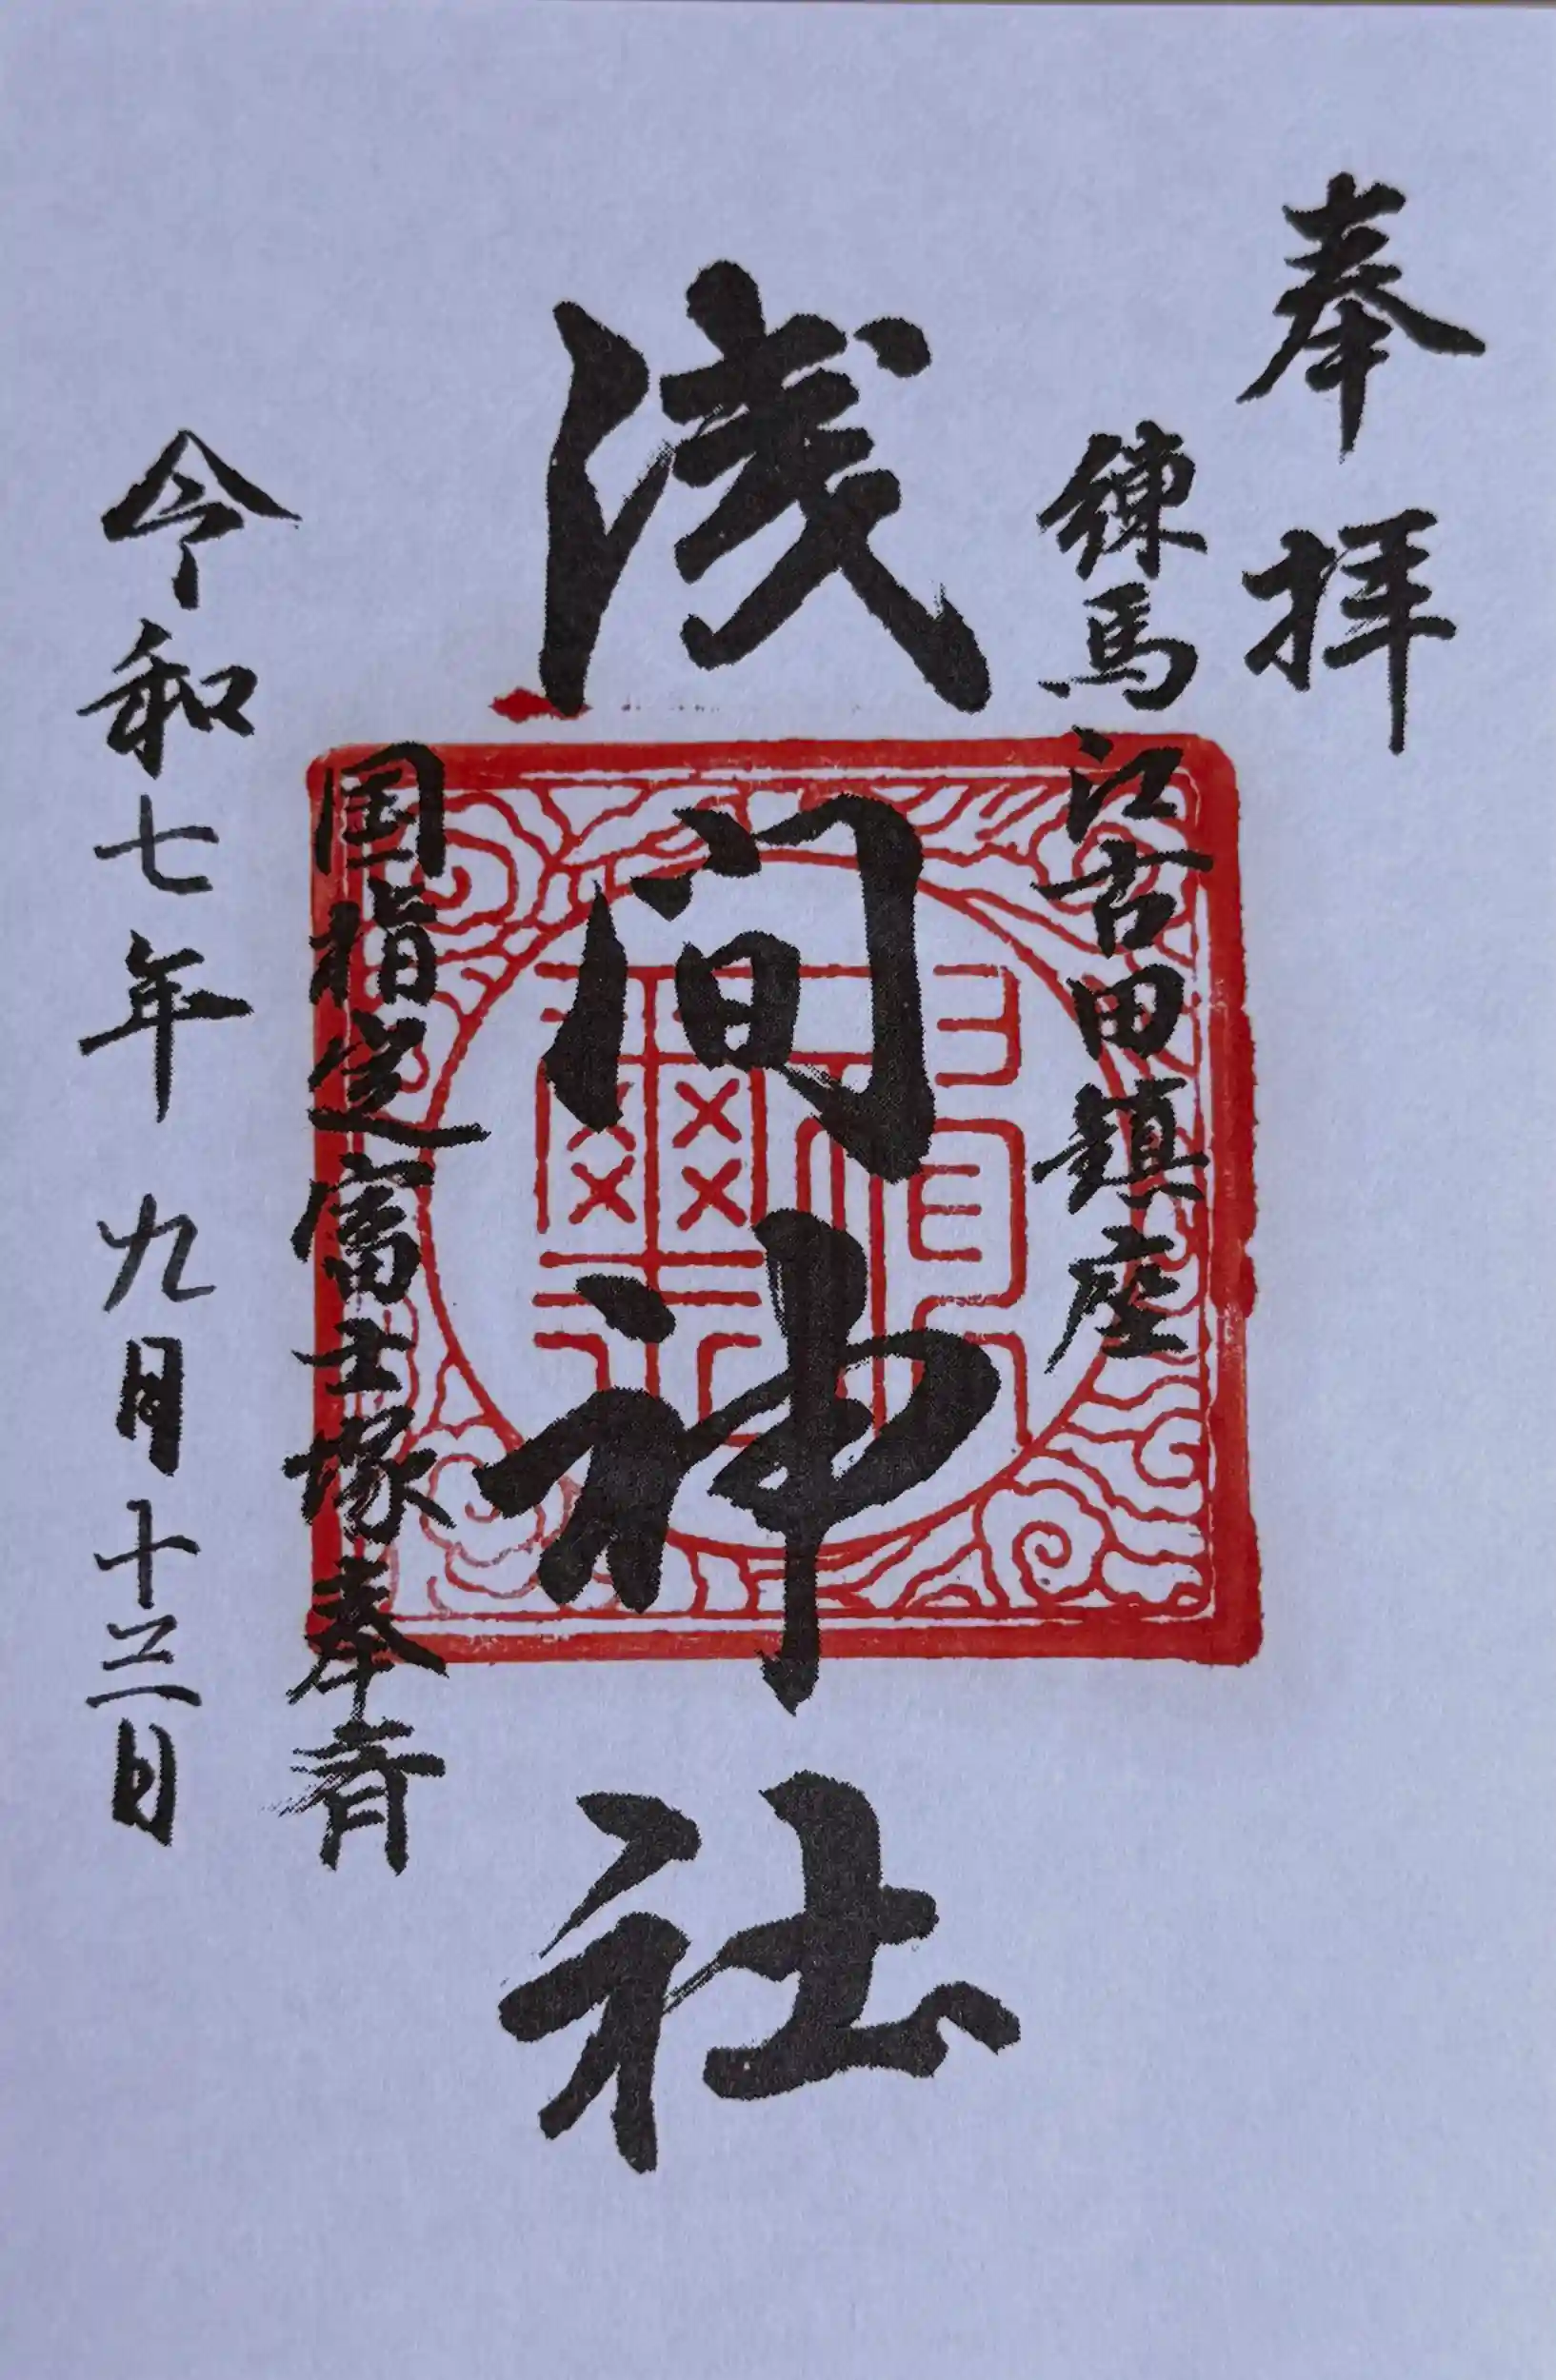 奉拝
練馬江古田鎮座
浅间神社
国指定富士塚奉斉
令和七年九月十三日